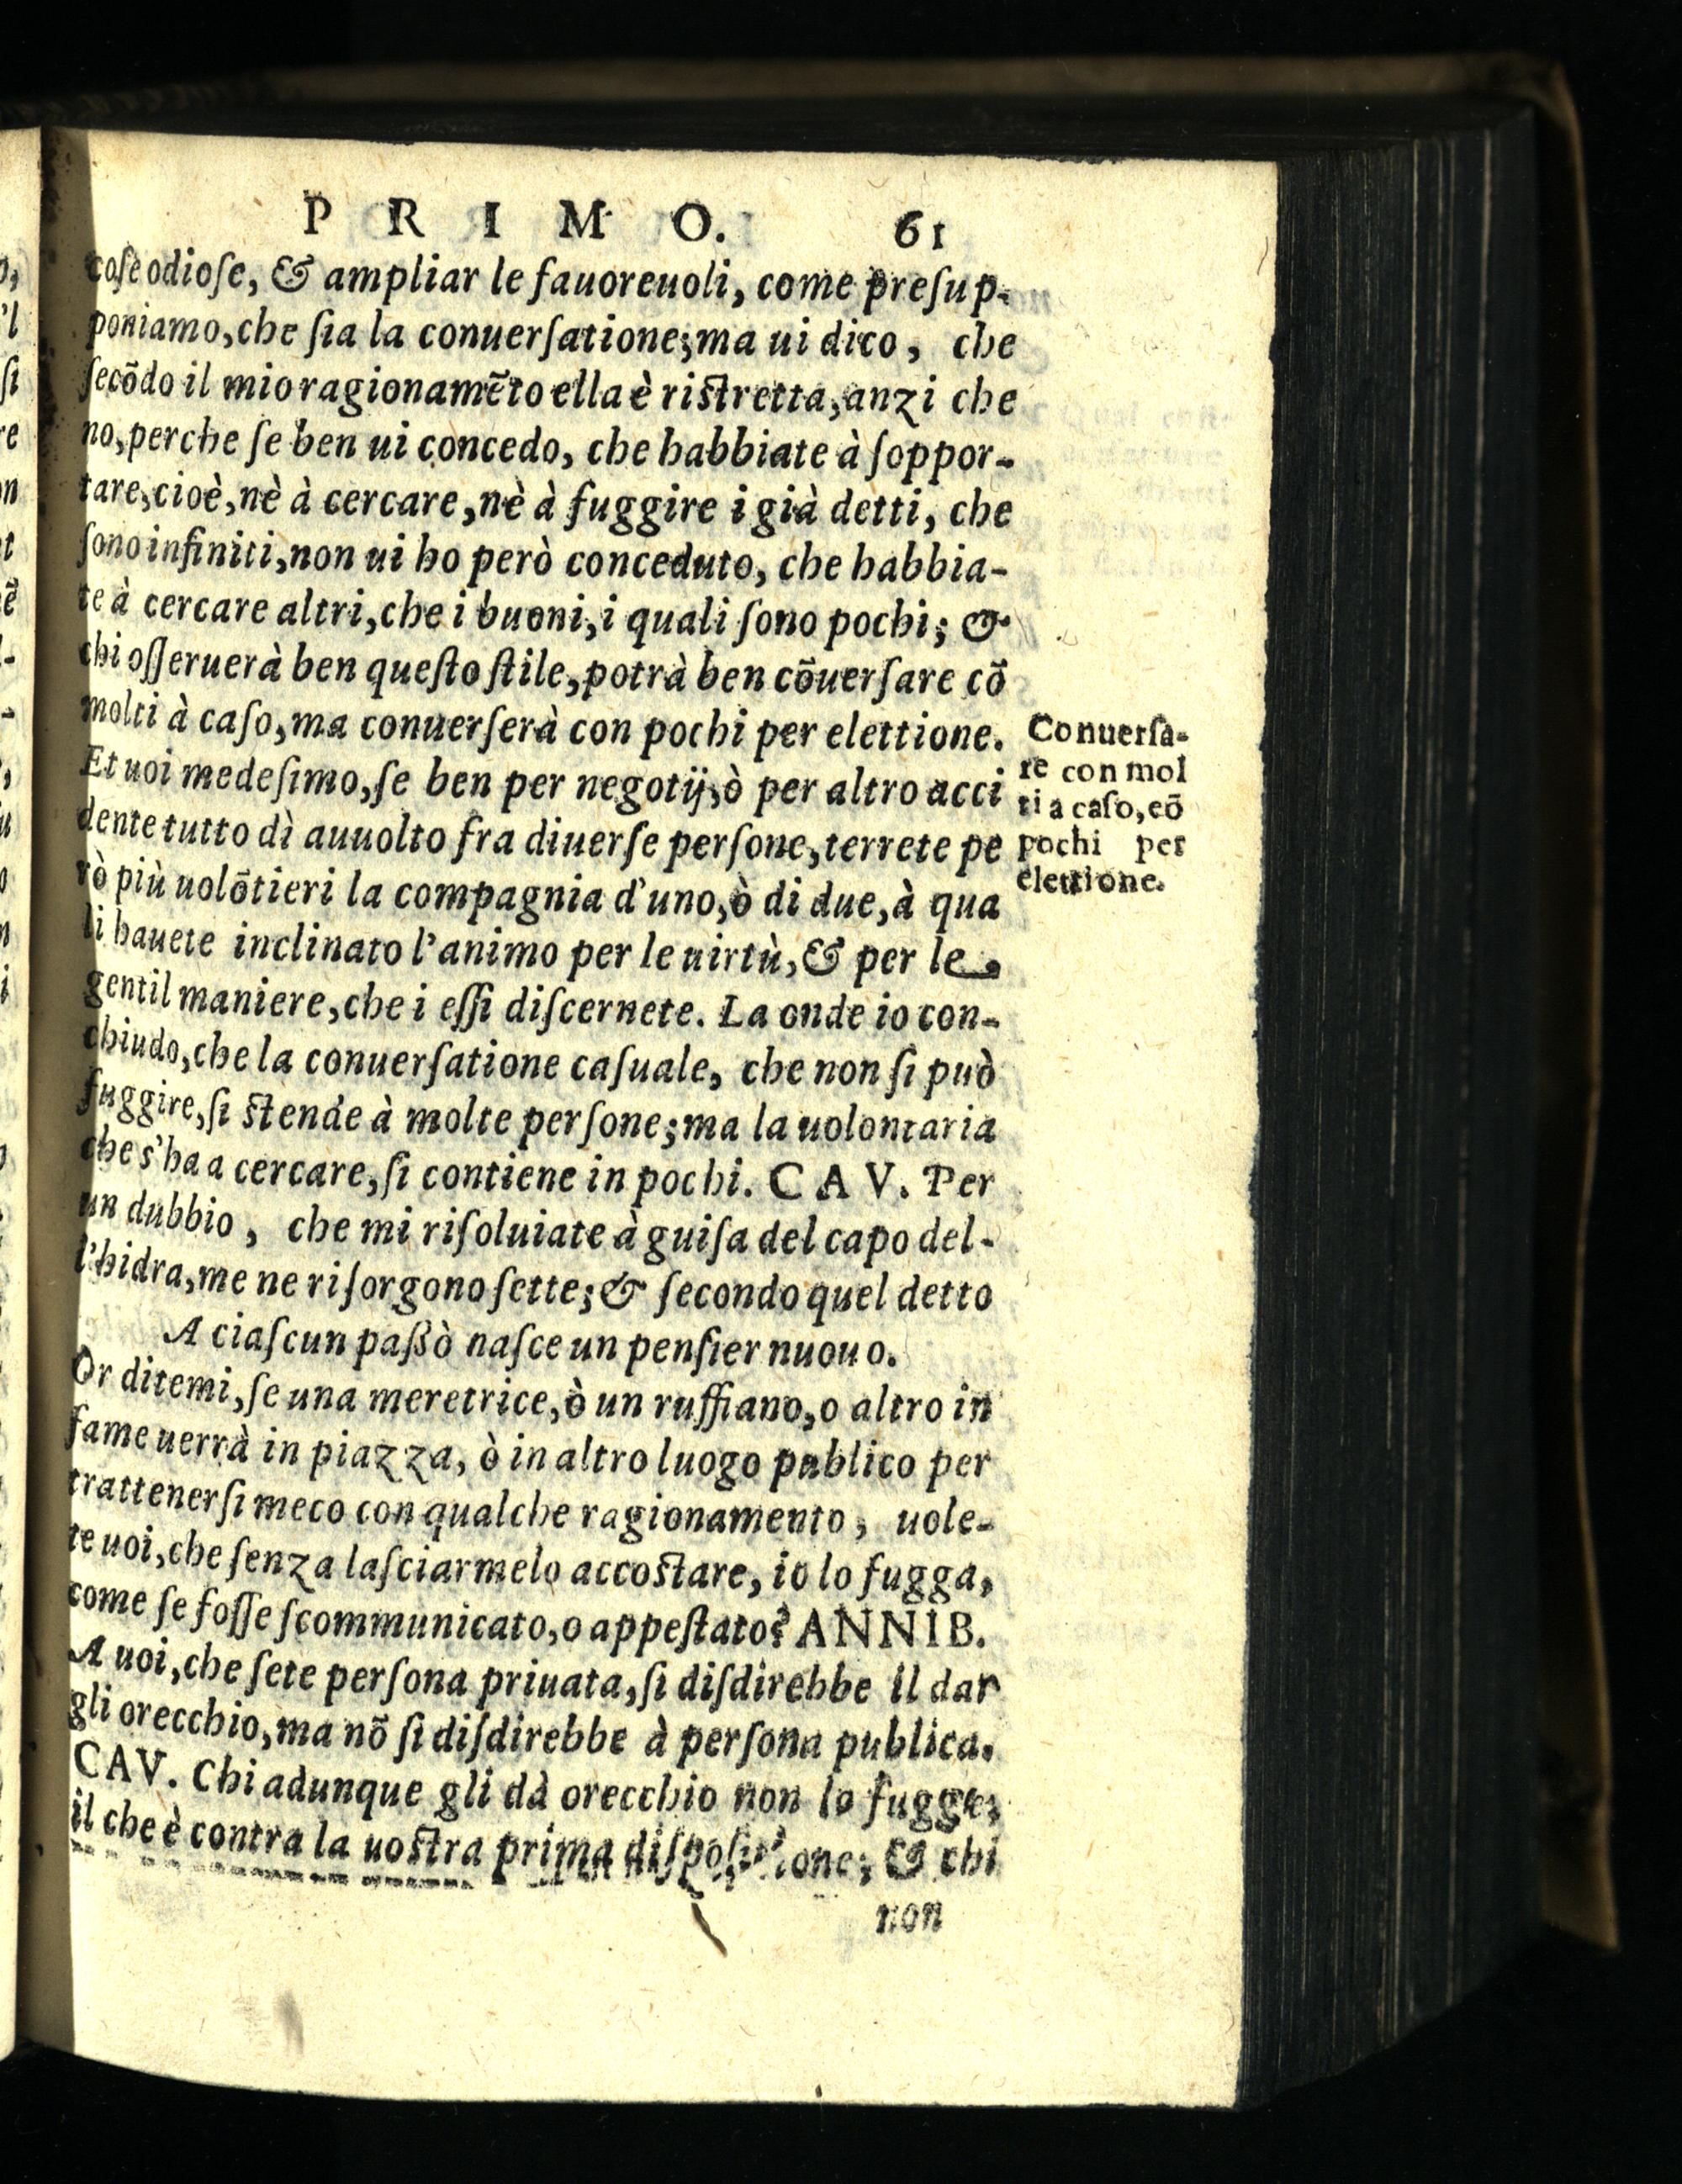 PRIMO. 61
coſe odioſe, & ampliar le fauoreuoli, come preſup-
poniamo, che ſia la conuerſatione; ma ui dico, che
ſecõdo il mio ragionamẽto ella è riſtretta, anzi che
no, perche ſe ben ui concedo, che habbiate à ſoppor-
tare, cioè, nè à cercare, nè à fuggire i già detti, che
ſono infiniti, non ui ho però conceduto, che habbia-
te à cercare altri, che i buoni, i quali ſono pochi; &
chi oſſeruerà ben queſto ſtile, potrà ben cõuerſare cõ
molti à caſo, ma conuerſerà con pochi per elettione.
Et uoi medeſimo, ſe ben per negotij, ò per altro acci
dente tutto dì auuolto fra diuerſe perſone, terrete pe
rò più uolõtieri la compagnia d'uno, ò di due, à qua
li hauete inclinato l'animo per le uirtù, & per le
gentil maniere, che i eſſi diſcernete. La onde io con-
chiudo, che la conuerſatione caſuale, che non ſi può
fuggire, ſi ſtende à molte perſone; ma la uolontaria
che s'ha a cercare, ſi contiene in pochi. CAV. Per
un dubbio, che mi riſoluiate à guiſa del capo del-
l'hidra, me ne riſorgono ſette; & ſecondo quel detto
A ciaſcun paßò naſce un penſier nuouo.
Or ditemi, ſe una meretrice, ò un ruffiano, o altro in
fame uerrà in piazza, ò in altro luogo publico per
trattenerſi meco con qualche ragionamento, uole-
te uoi, che ſenza laſciarmelo accoſtare, io lo fugga,
come ſe foſſe ſcommunicato, o appeſtato? ANNIB.
A uoi, che ſete perſona priuata, ſi diſdirebbe il dar
gli orecchio, ma nõ ſi diſdirebbe à perſona publica.
CAV. Chi adunque gli dà orecchio non lo fugge;
il che è contra la uoſtra prima diſpoſitione; & chi
non
Conuerſa-
re con mol
ti a caſo, cõ
pochi per
elettione.